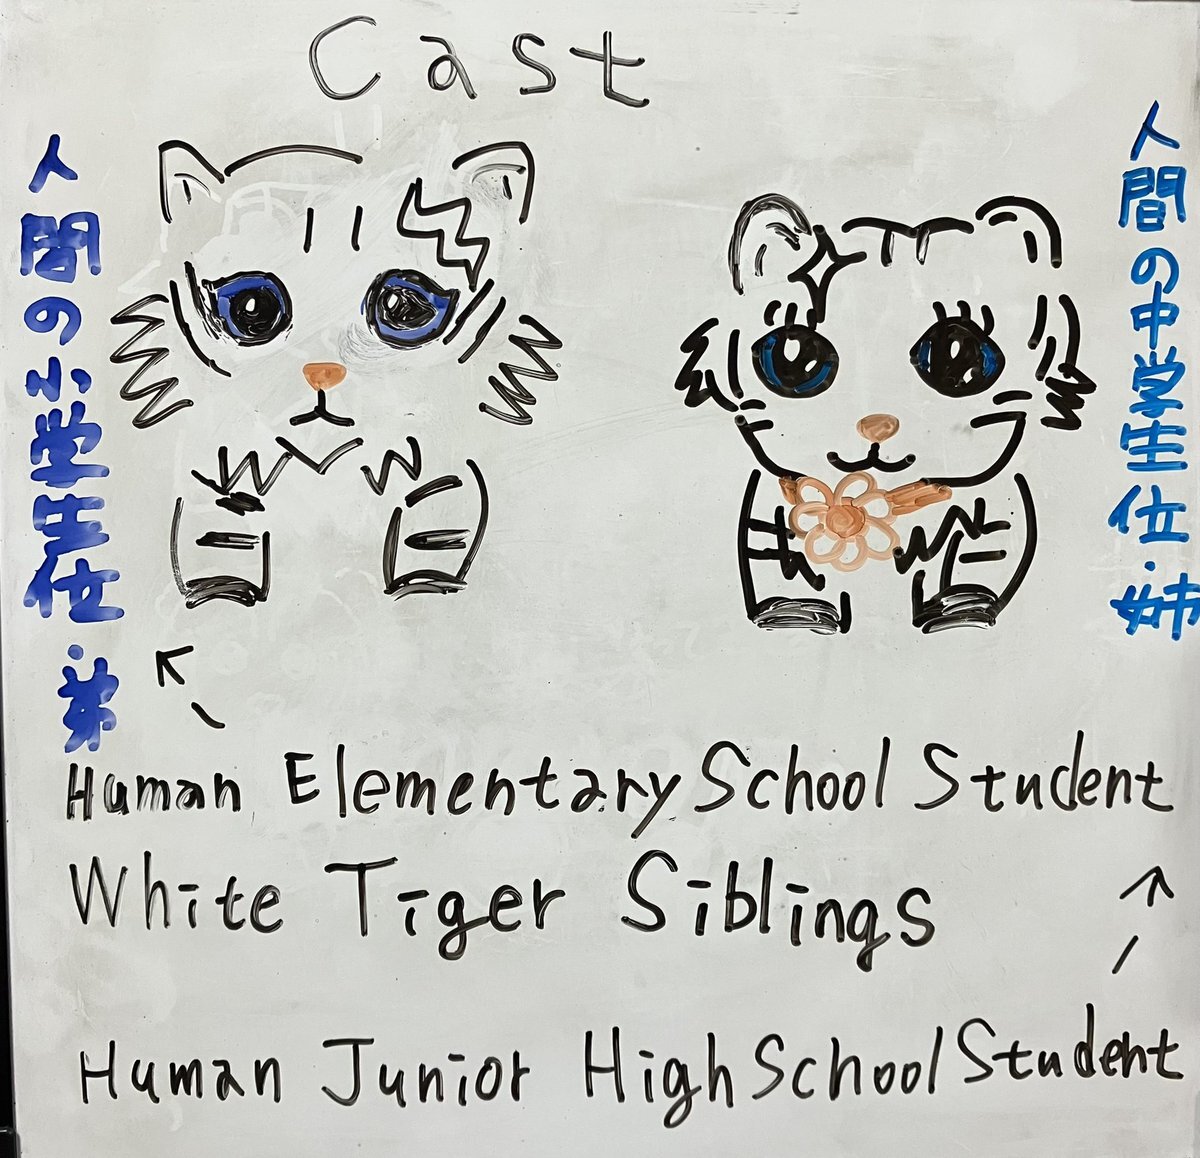 Cast
人間の小学生位・弟
人間の中学生位・姉
Human Elementary School Student
White Tiger Siblings
Human Junior High School Student